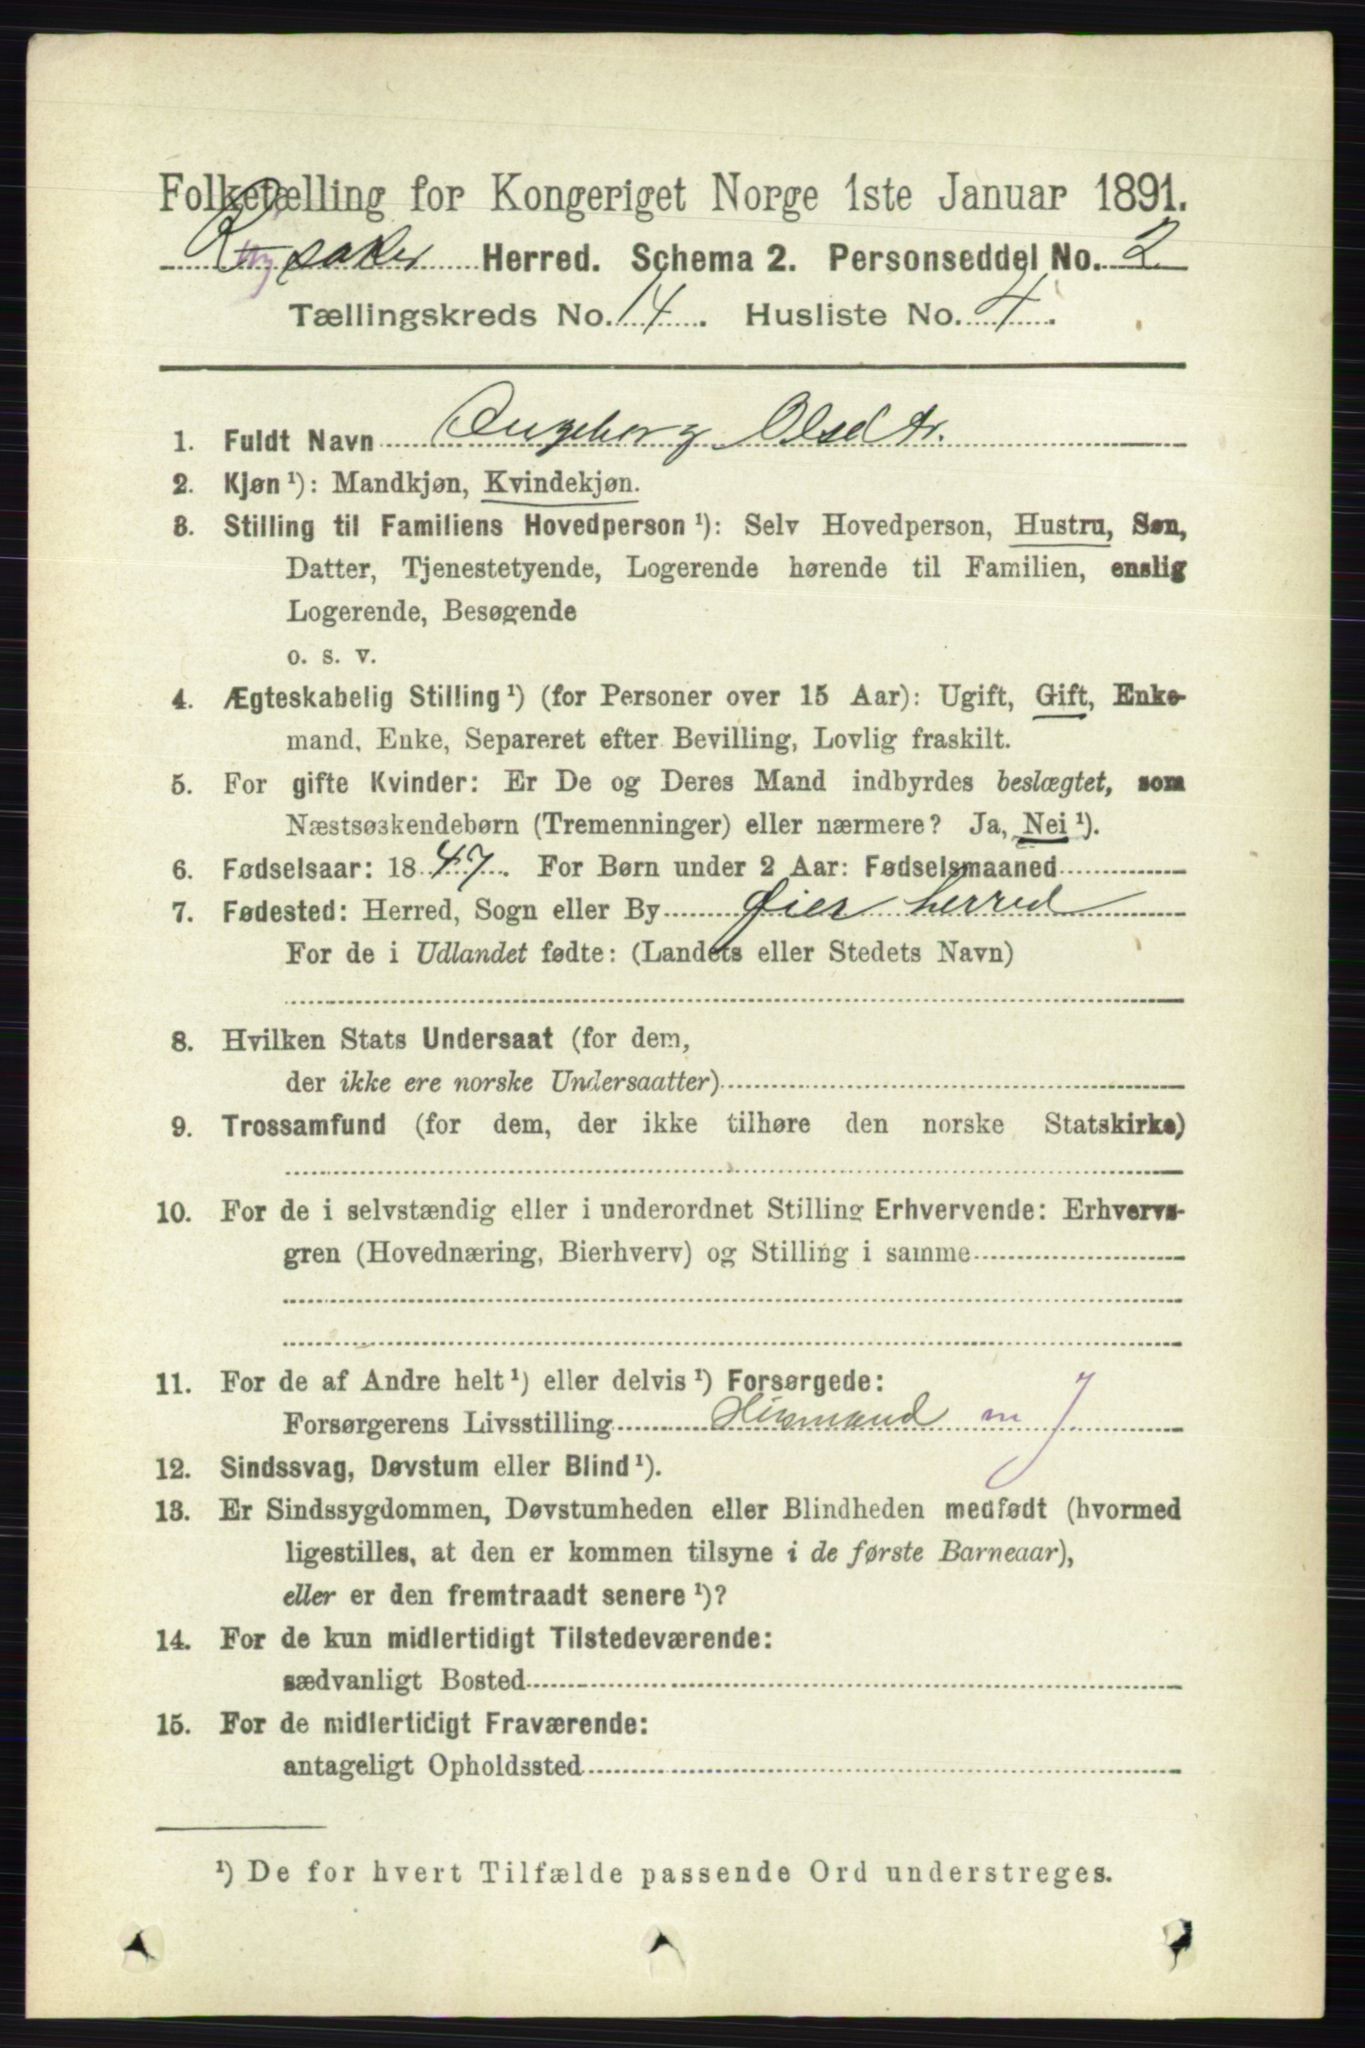 Folketælling for Kongeriget Norge 1ste Januar 1891.
Ringsaker Herred. Schema 2. Personseddel No. 2
Tællingskreds No. 14. Husliste No. 4.
1. Fuldt Navn Ingeborg Olsdtr.
2. Kjøn ¹): Mandkjøn, Kvindekjøn.
3. Stilling til Familiens Hovedperson ¹): Selv Hovedperson, Hustru, Søn,
Datter, Tjenestetyende, Logerende hørende til Familien, enslig
Logerende, Besøgende
o. s. v.
4. Ægteskabelig Stilling ¹) (for Personer over 15 Aar): Ugift, Gift, Enke-
mand, Enke, Separeret efter Bevilling, Lovlig fraskilt.
5. For gifte Kvinder: Er De og Deres Mand indbyrdes beslægtet, som
Næstsøskendebørn (Tremenninger) eller nærmere? Ja, Nei ¹).
6. Fødselsaar: 1847. For Børn under 2 Aar: Fødselsmaaned
7. Fødested: Herred, Sogn eller By Øier herred
For de i Udlandet fødte: (Landets eller Stedets Navn)
8. Hvilken Stats Undersaat (for dem,
der ikke ere norske Undersaatter)
9. Trossamfund (for dem, der ikke tilhøre den norske Statskirke)
10. For de i selvstændig eller i underordnet Stilling Erhvervende: Erhvervs-
gren (Hovednæring, Bierhverv) og Stilling i samme
11. For de af Andre helt ¹) eller delvis ¹) Forsørgede:
Forsørgerens Livsstilling Husmand m J
12. Sindssvag, Døvstum eller Blind ¹).
13. Er Sindssygdommen, Døvstumheden eller Blindheden medfødt (hvormed
ligestilles, at den er kommen tilsyne i de første Barneaar),
eller er den fremtraadt senere ¹)?
14. For de kun midlertidigt Tilstedeværende:
sædvanligt Bosted
15. For de midlertidigt Fraværende:
antageligt Opholdssted
¹) De for hvert Tilfælde passende Ord understreges.